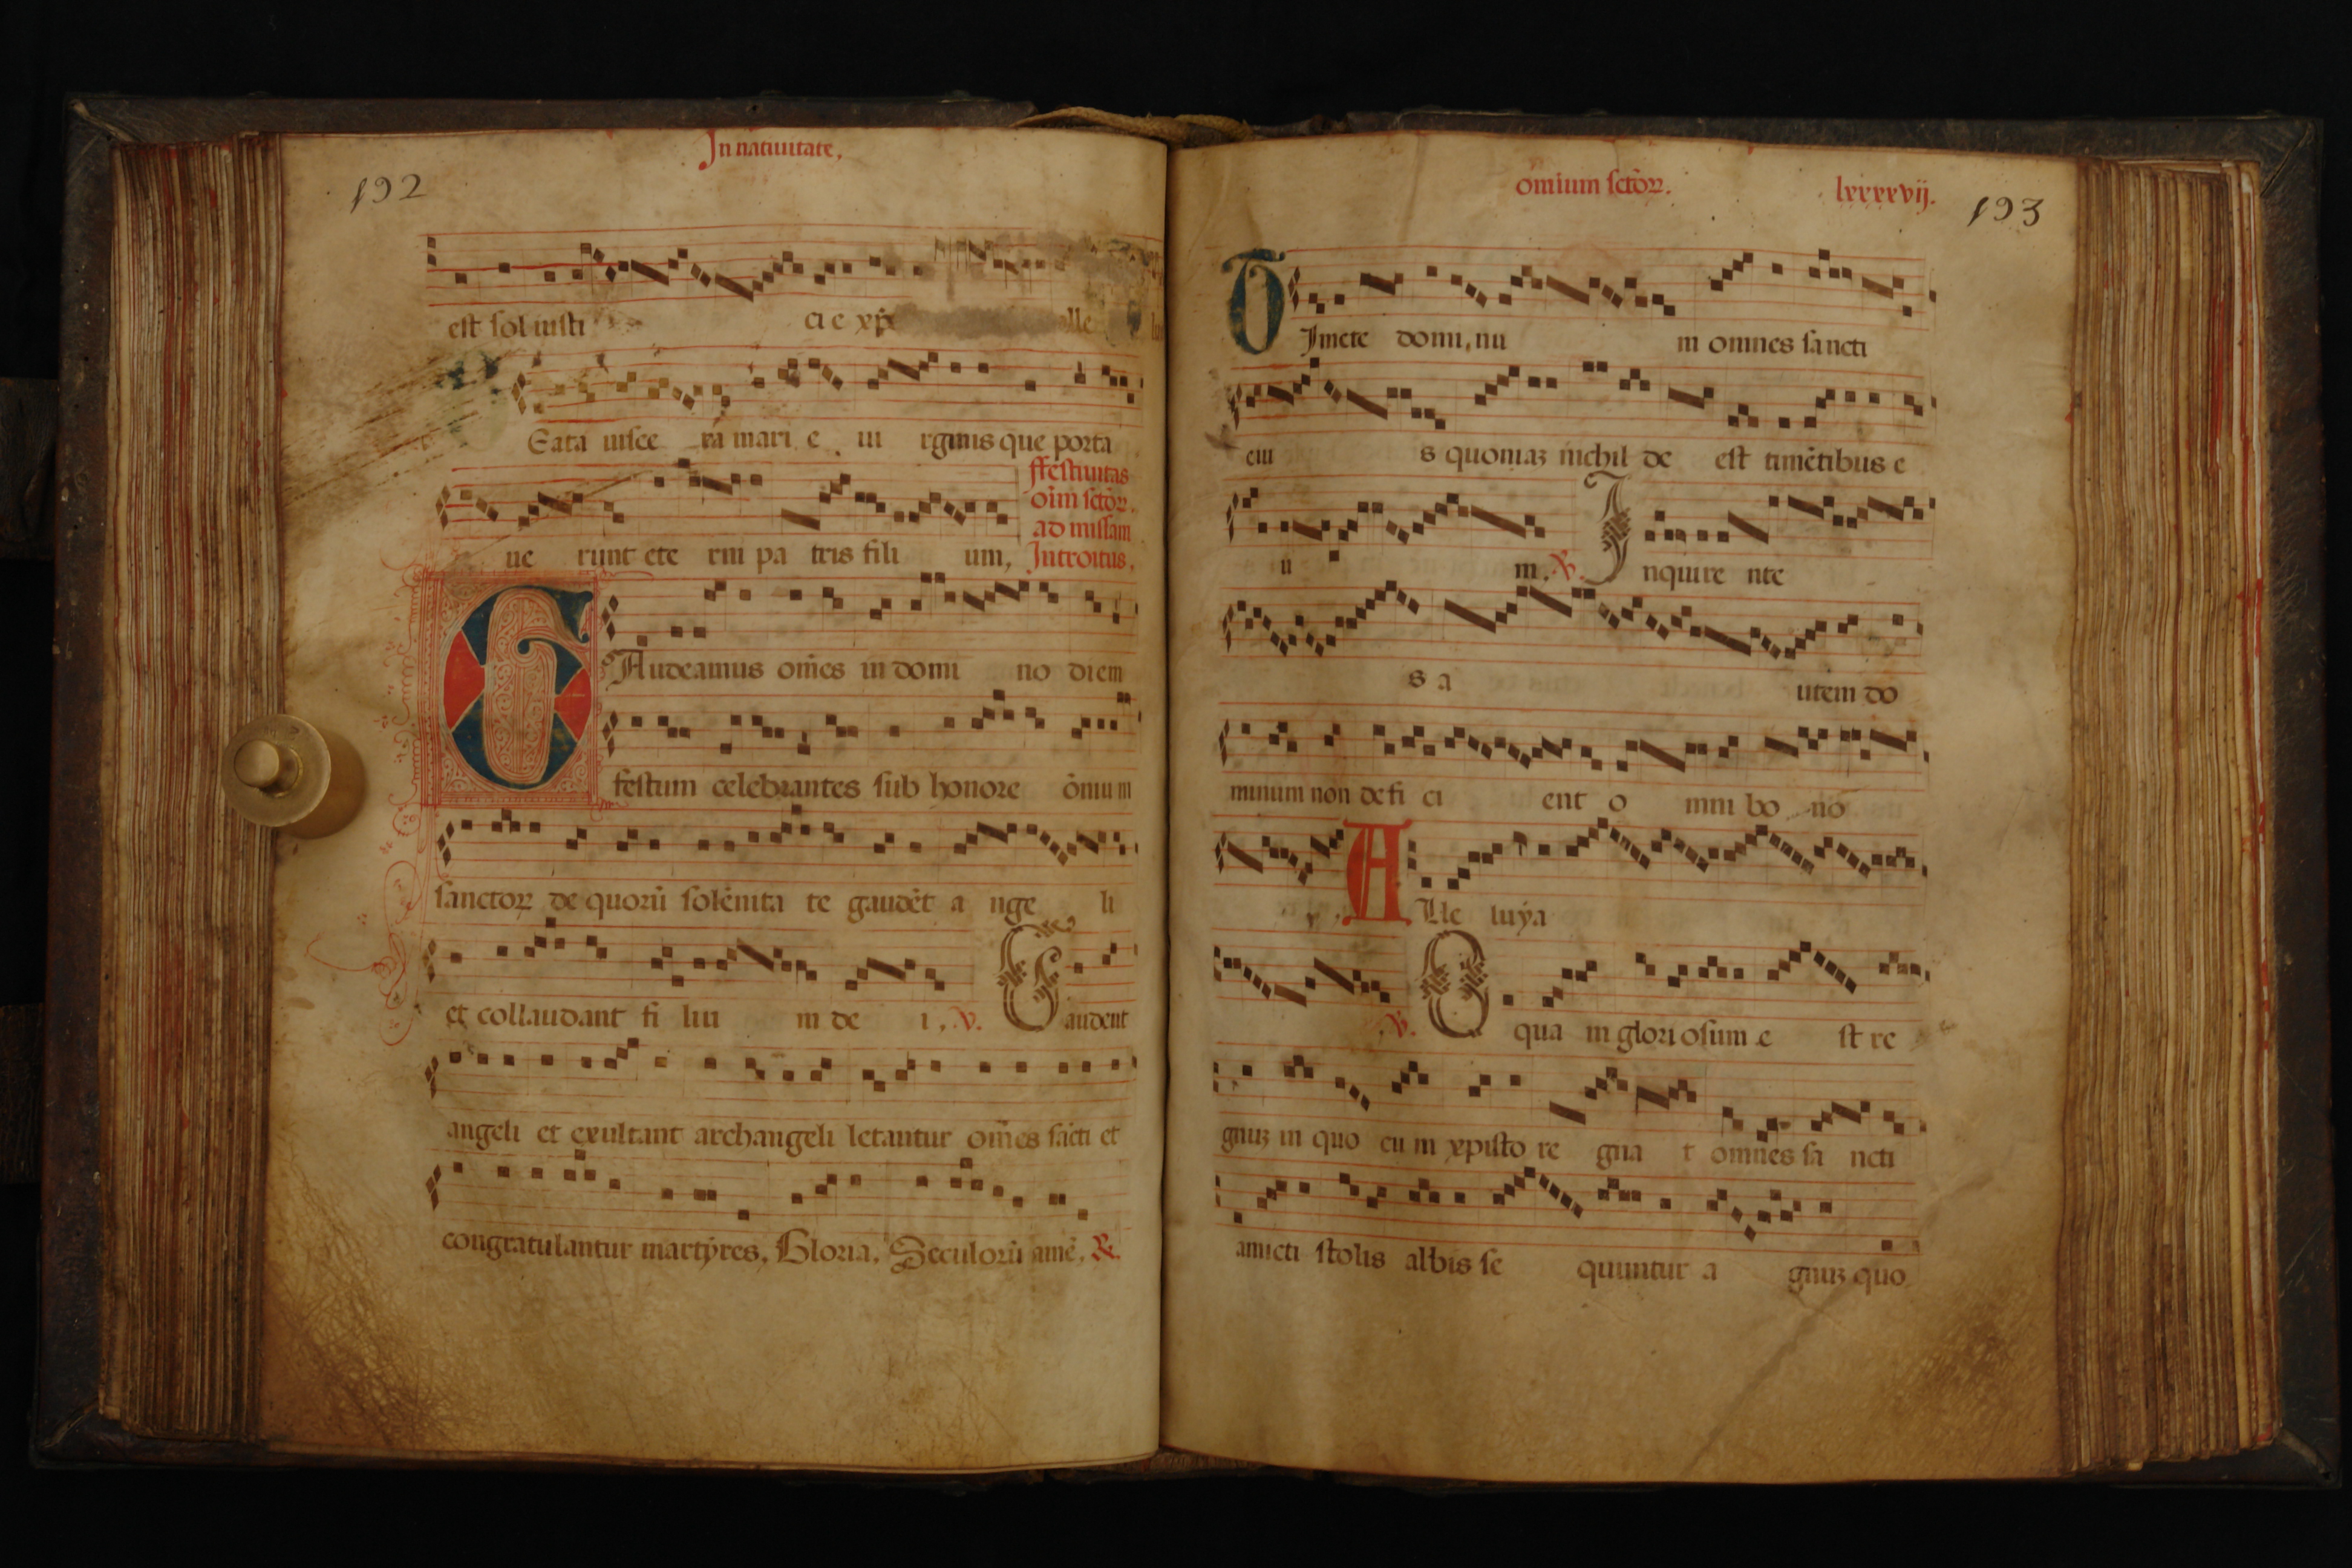 In natiuitate,
192
est sol iusti ci e xp̄s
Eata uisce ra mari e ui rginis que porta
ue runt ete rni pa tris fili um,
ffestiuitas
oīm sctōꝝ.
ad missam
Introitus,
GAudeamus om̄es in domi no diem
festum celebrantes sub honore ōnium
sanctoꝝ de quorū solēnita te gaudēt a nge li
et collaudant fi liu m de i, ℣. Gaudent
angeli et exultant archangeli letantur om̄es sācti et
congratulantur martẏres, Gloria, Seculorū amē, ℟.
om̄ium sctōꝝ.
lxxxxvij.
193
TImete domi,nu m omnes sancti
eiu s quoniaꝫ nichil de est timētibus e
u m, ℣. Inquire nte
s a utem do
minum non defi ci ent o mni bo no
ALle luẏa
℣. O qua m glori osum e st re
gnuꝫ in quo cu m xpisto re gna t omnes sa ncti
amicti stolis albis se quuntur a gnuꝫ quo